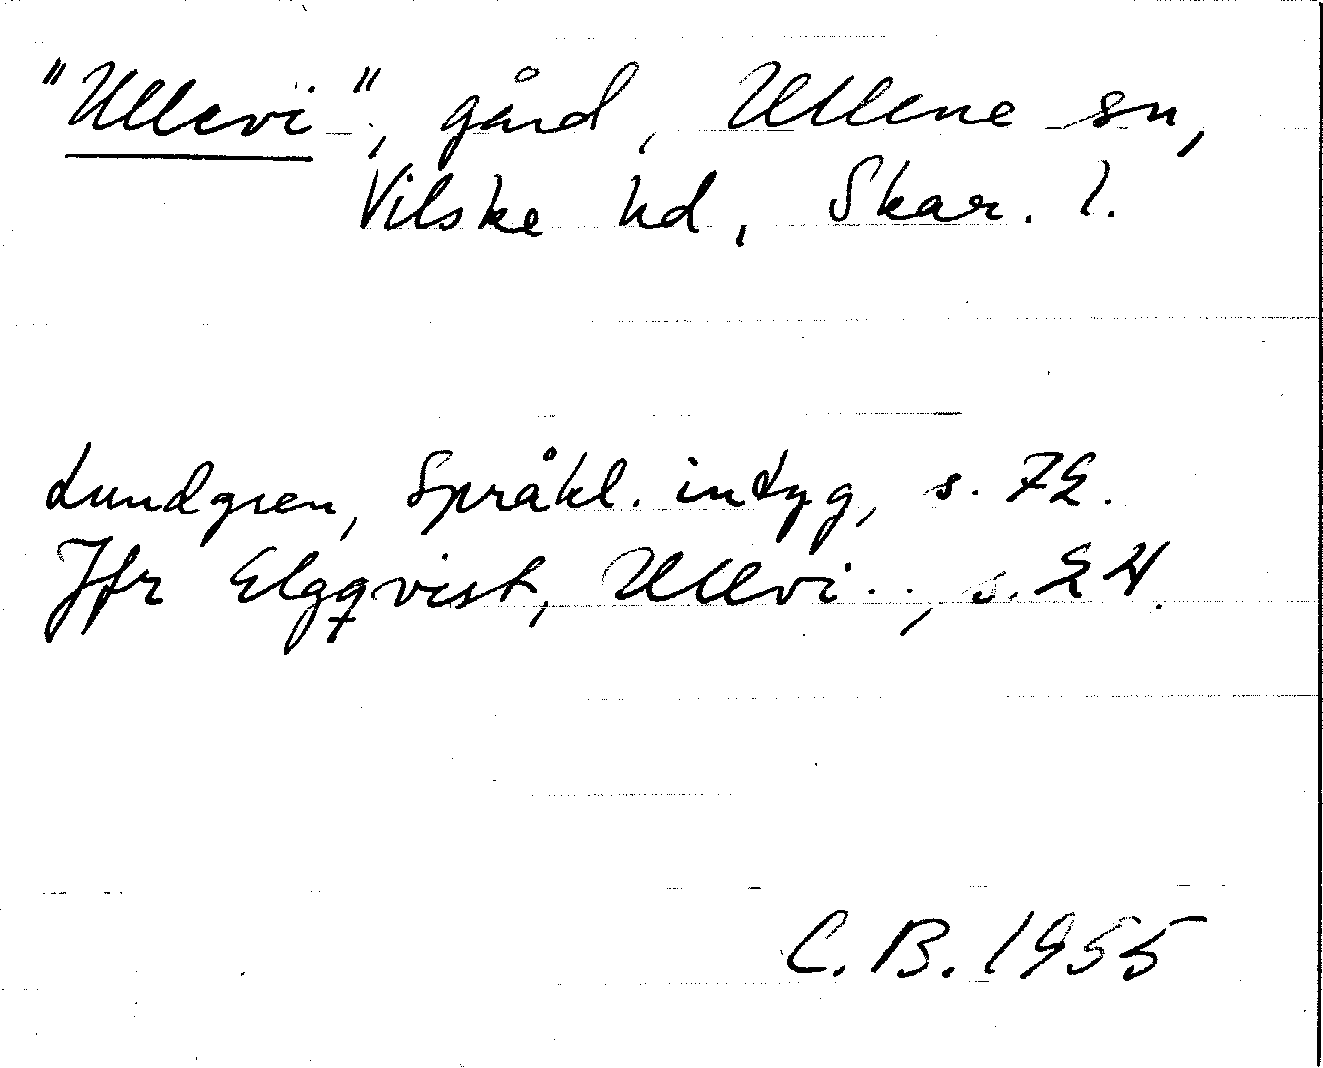 "Ullevi", gård, Ullene sn,
Vilske hd, Skar. l.
Lundgren, Språkl. intyg, s. 72.
Jfr Elgqvist, Ullvi.., s. 24.
C. B. 1955